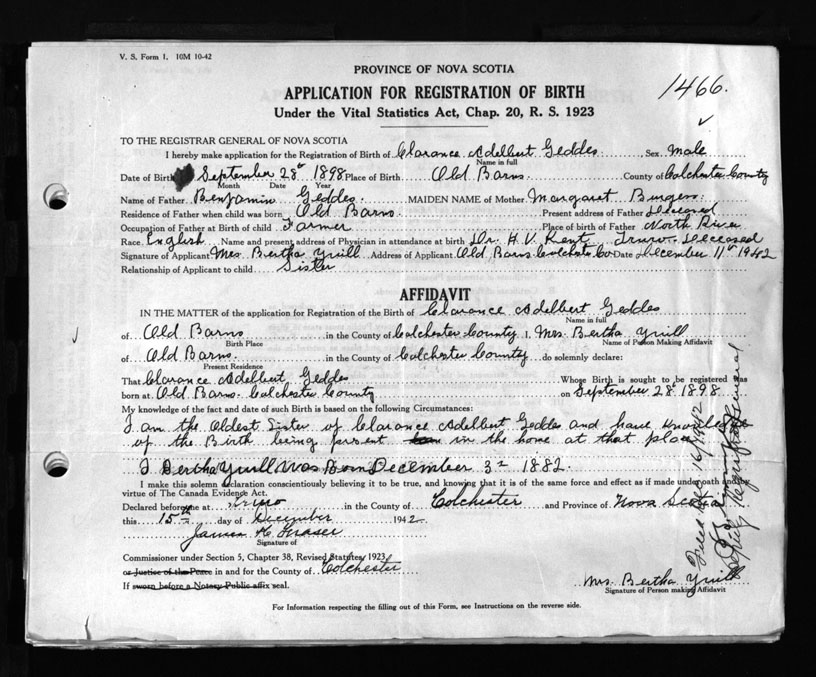 V. S. Form 1. 10M 10-42
PROVINCE OF NOVA SCOTIA
1466.
APPLICATION FOR REGISTRATION OF BIRTH
Under the Vital Statistics Act, Chap. 20, R. S. 1923
TO THE REGISTRAR GENERAL OF NOVA SCOTIA
I hereby make application for the Registration of Birth of Clarance Adelbert Geddes Sex Male
Name in full
Date of Birth September 28th 1898 Place of Birth Old Barns. County of Colchester County
Month Date Year
Name of Father Benjamin Geddes MAIDEN NAME of Mother Margaret Burgess
Residence of Father when child was born Old Barns Present address of Father Deceased
Occupation of Father at Birth of child Farmer Place of birth of Father North River
Race English Name and present address of Physician in attendance at birth Dr. H. V. Kent Truro. Deceased
Signature of Applicant Mrs. Bertha Yuill Address of Applicant Old Barns Colchester Co Date December 11th 1942
Relationship of Applicant to child Sister
AFFIDAVIT
IN THE MATTER of the application for Registration of the Birth of Clarance Adelbert Geddes
Name in full
of Old Barns in the County of Colchester County I, Mrs. Bertha Yuill
Birth Place Name of Person Making Affidavit
of Old Barns. in the County of Colchester County do solemnly declare:
Present Residence
That Clarance Adelbert Geddes Whose Birth is sought to be registered was
born at Old Barns Colchester County on September 28 1898
My knowledge of the fact and date of such Birth is based on the following Circumstances:
I am the Oldest Sister of Clarance Adelbert Geddes and have knowledge
of the Birth being present in the home at that place
I Bertha Yuill Was Born December 3rd 1882.
I make this solemn declaration conscientiously believing it to be true, and knowing that it is of same force and effect as if made under oath and by
virtue of The Canada Evidence Act.
Declared before me at Truro in the County of Colchester and Province of Nova Scotia
this 15th day of December 1942
James H. Fraser
Signature of
Commissioner under Section 5, Chapter 38, Revised Statutes 1923
or Justice of the Peace in and for the County of Colchester
If sworn before a Notary Public affix seal.
Mrs. Bertha Yuill
Signature of Person making Affidavit
For Information respecting the filling out of this Form, see Instructions on the reverse side.
Filed Dec 16/1942
Deputy Registrar General